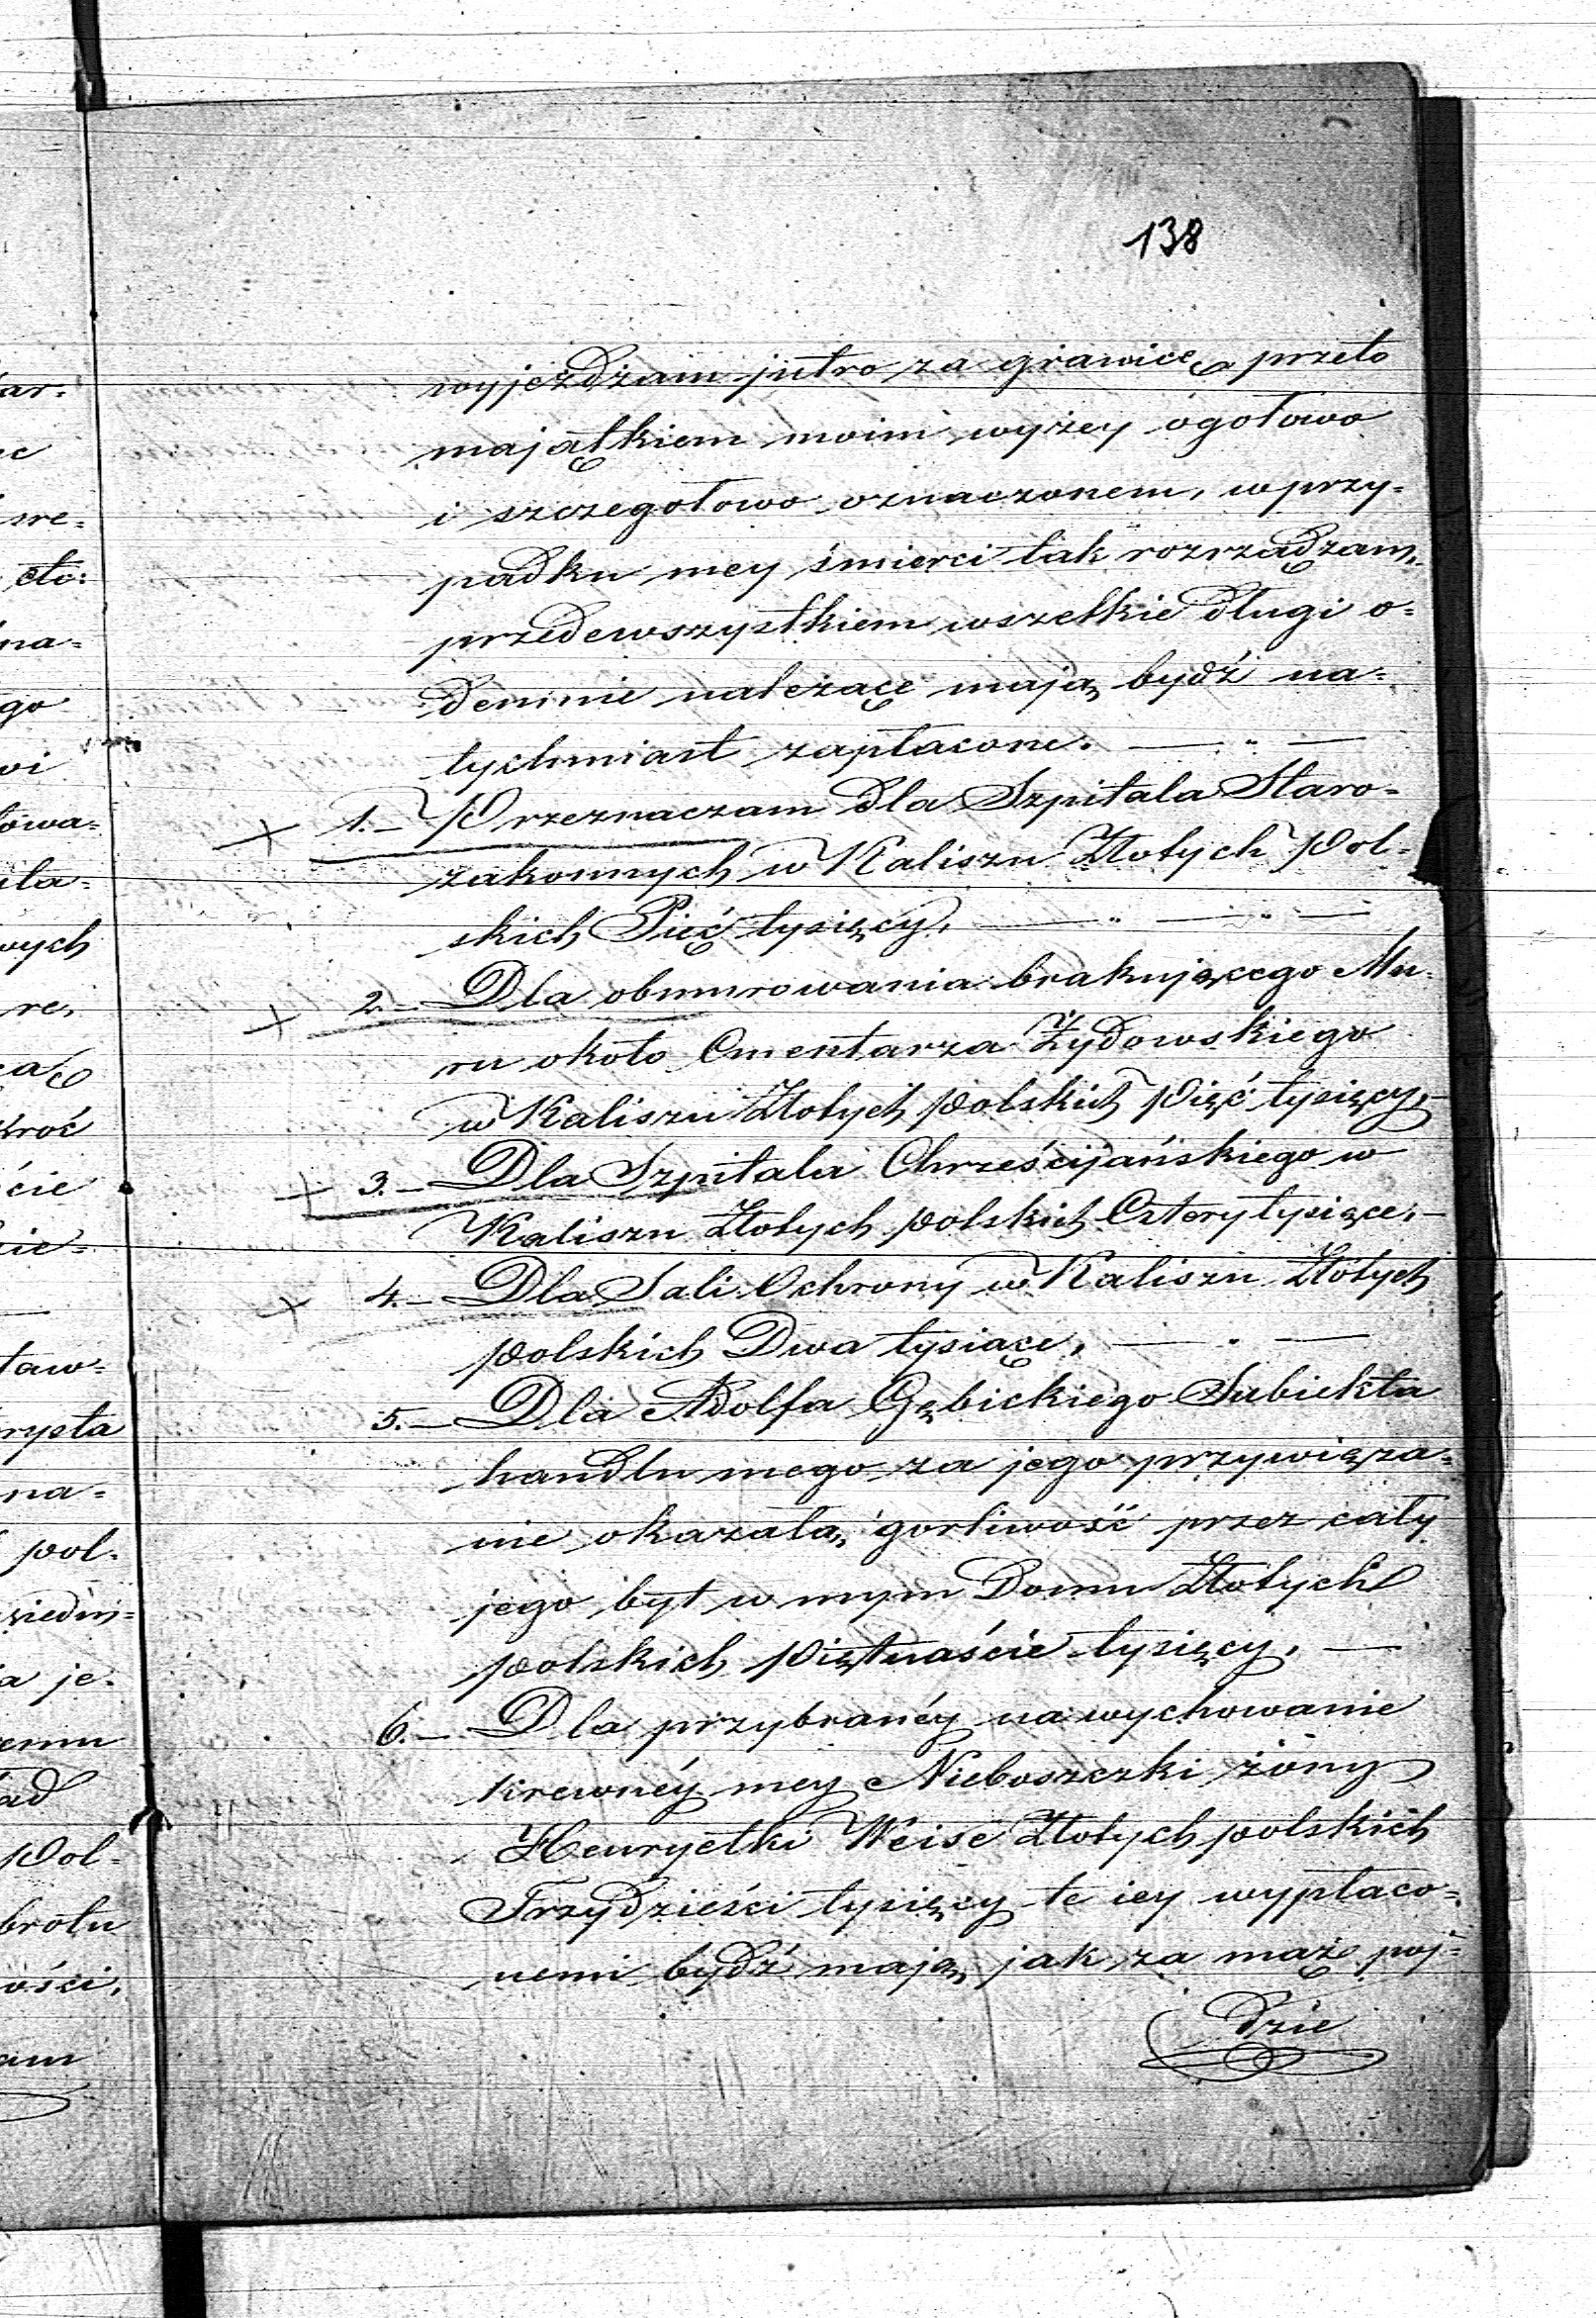 138
wyjeżdżam jutro za granicę, przeto
majątkiem moim wyżey ogołowo
i szczegołowo oznaczonem, w przy-
padku mey śmierci tak rozrządzam,
przedewszystkiem wszelkie długi o-
demnie należącę mają bydź na-
tychmiast zapłacone.
1. Przeznaczam dla Szpitala Staro-
zakonnych w Kaliszu Złotych Pol-
skich Pięć tysięcy,
2. Dla obmurowania brakującego Mu-
ru około Cmentarza Żydowskiego
w Kaliszu Złotych polskich pięć tysięcy,
3. Dla Szpitala Chrześcijańskiego w
Kaliszu Złotych polskich Cztery tysiące,
4. Dla Sali Ochrony w Kaliszu Złotych
polskich Dwa tysiące,
5. Dla Adolfa Gębickiego Subiekta
handlu mego za jego przywiąza-
nie okazałą, gorliwość przez cały
jego byt w mym Domu Złotych
polskich piętnaście tysięcy,
6. Dla przybranéy na wychowanie
krewnéy mey Nieboszczki żony
Henryetki Weise Złotych polskich
Trzydzieści tysięcy te iey wypłaco-
nemi bydź mają, jak za mąż pój-
dzie
ar-
sre-
cto-
na-
go
wi
łowa-
ila-
wych
re,
kroć
ście
kie-
taw-
rypta
na-
pol-
siedm-
a je-
emu
ad
Pol-
brotu
ości,
am